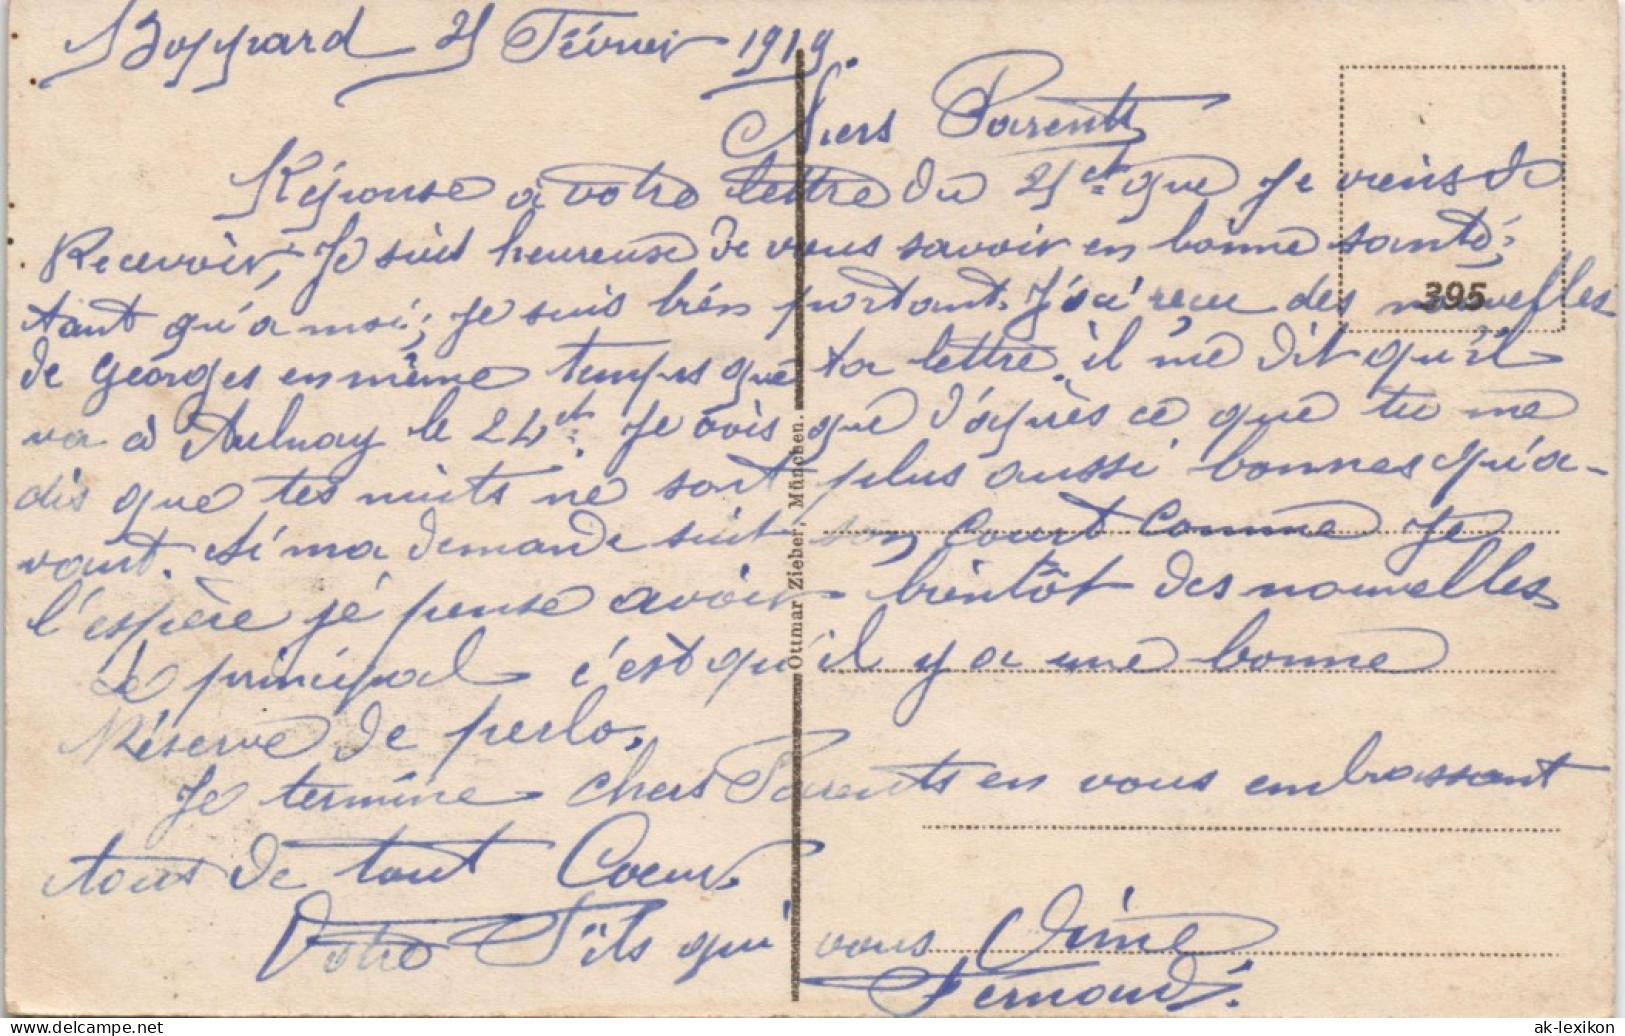 Boppard 25 Février 1919.
Chers Parents
Réponse à votre lettre du 21 ct que Je viens de
Recevoir, Je suis heureuse de vous savoir en bonne santé;
tant qu'à moi; Je suis bien portant. J'ai reçu des nouvelles
de Georges en même temps que ta lettre. il me dit qu'il
va à Aulnay le 24 ct. Je vois que d'après ce que tu me
dis que tes nuits ne sont plus aussi bonnes qu'a-
vant. Si ma demande suit son court comme Je
l'espère je pense avoir bientôt des nouvelles
Le principal c'est qu'il y a une bonne
Réserve de perlo.
Je termine chers Parents en vous embrassant
tous de tout Coeur.
Votre Fils qui vous Aime
Fernand.
395
Ottmar Zieber, München.
ak-lexikon